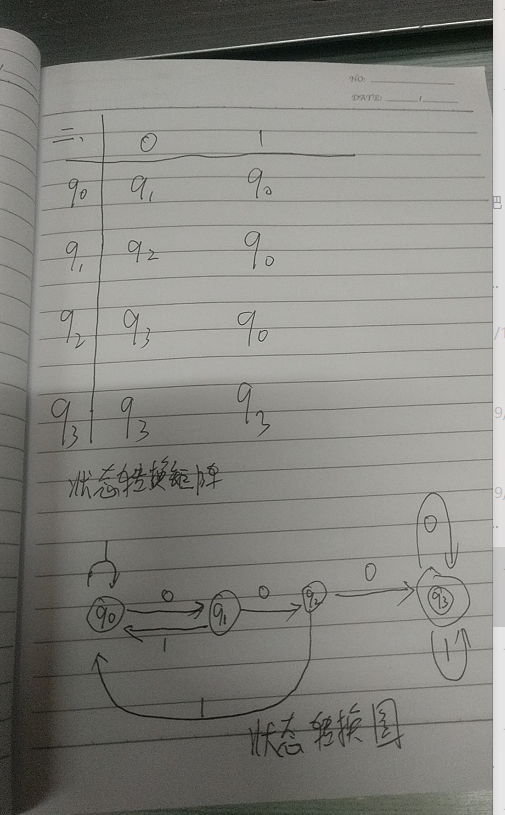 NO:
DATE: /
二、 0 1
q0 q1 q0
q1 q2 q0
q2 q3 q0
q3 q3 q3
状态转换矩阵
1 0
q0 0 q1 0 q2 0 q3
1 1
1
状态转换图